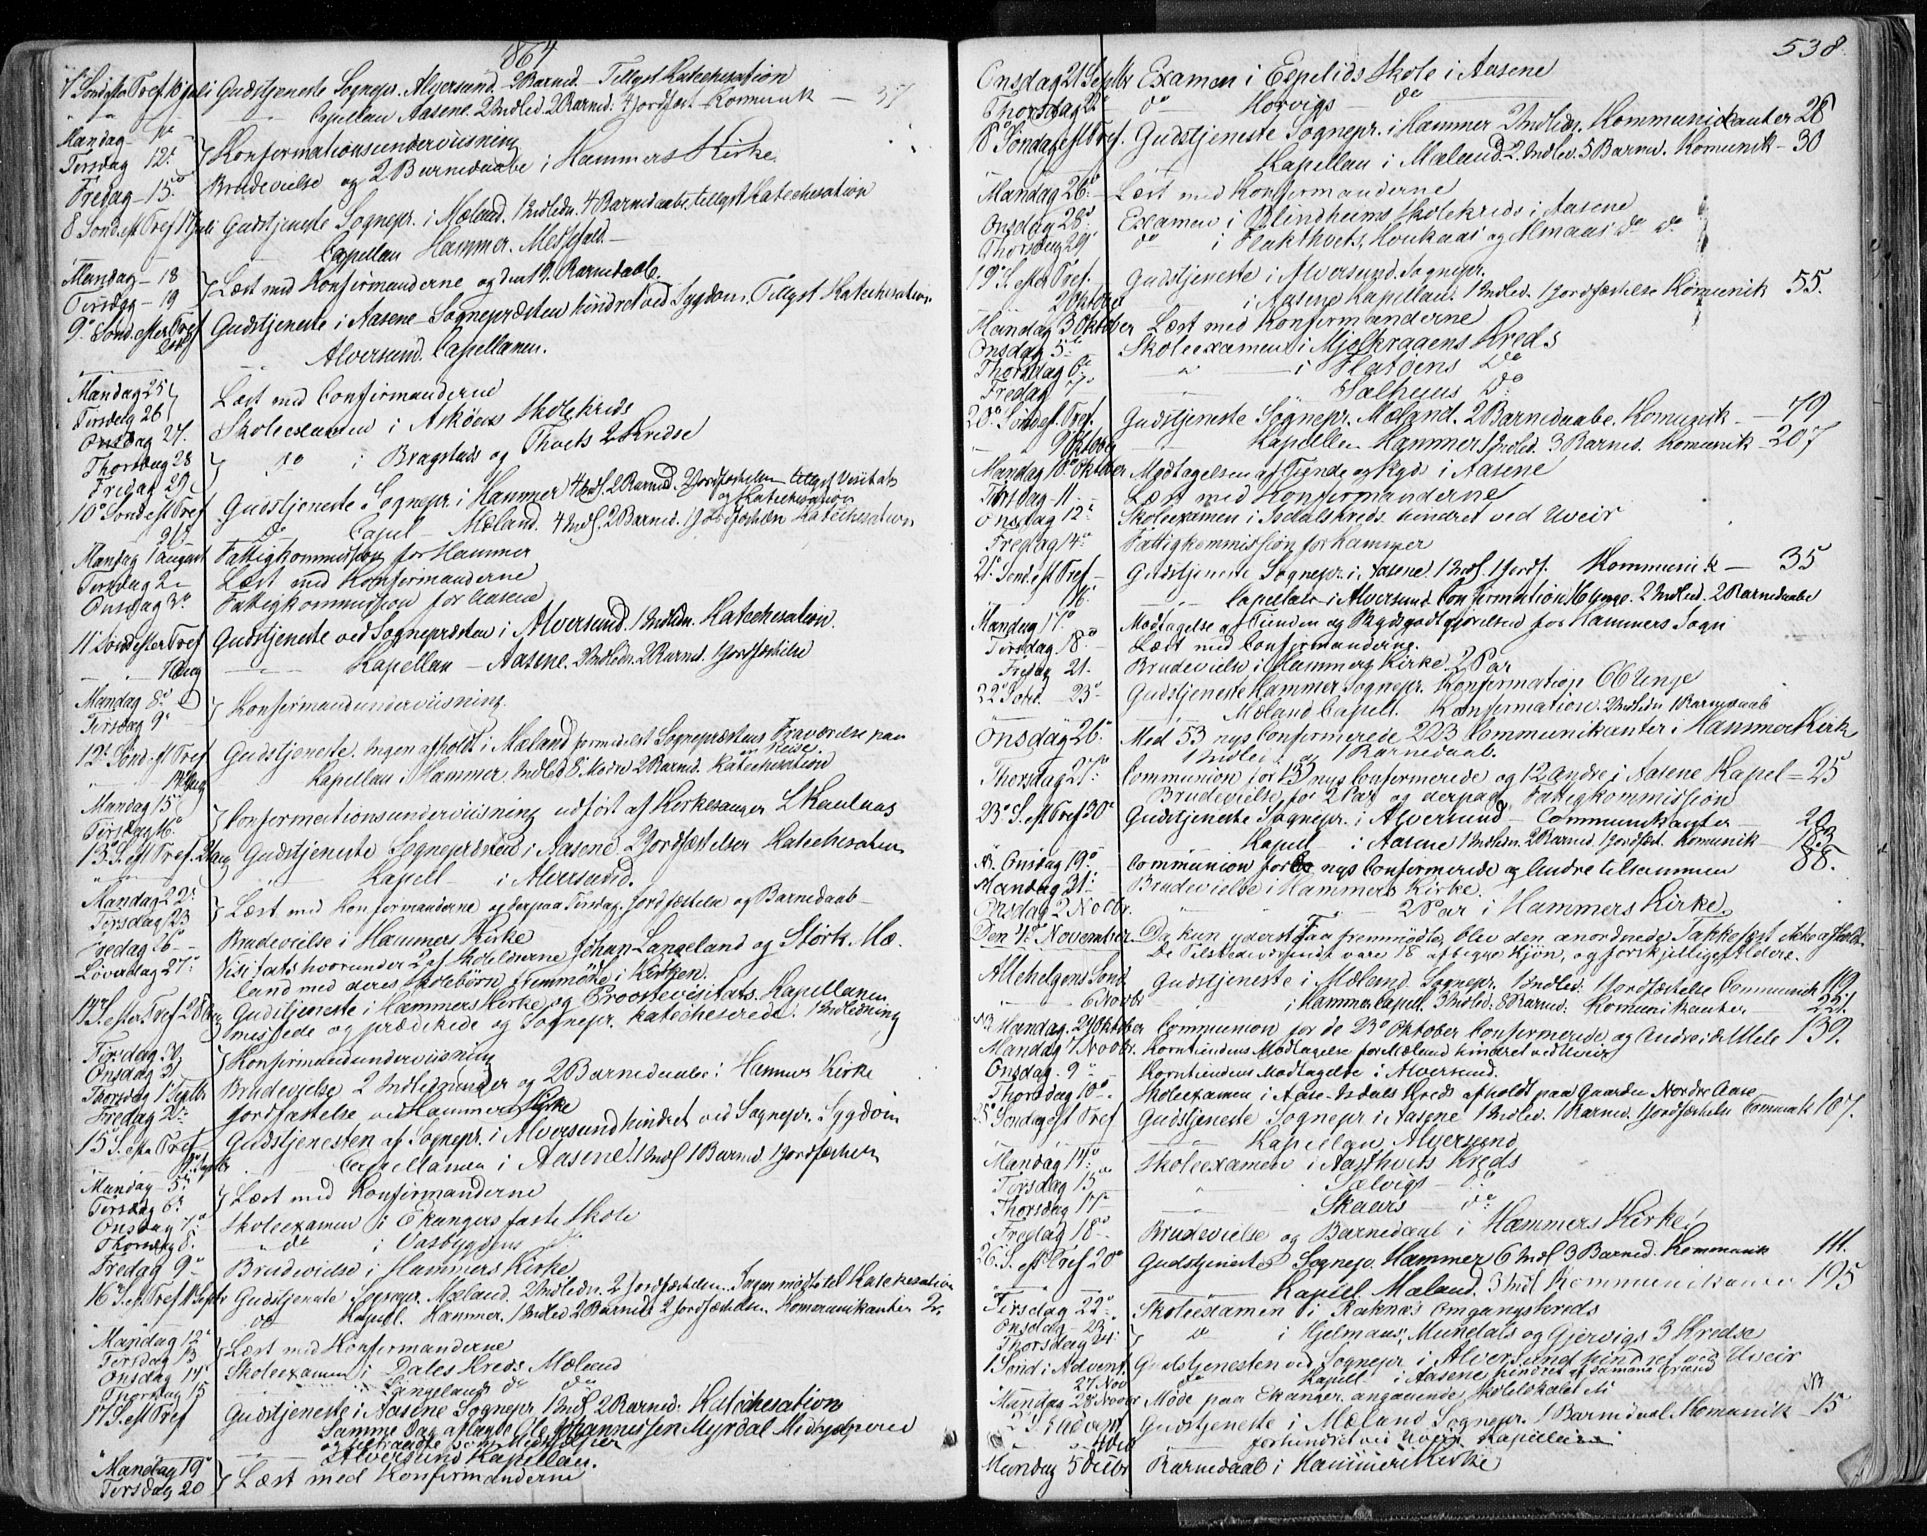 1864
7 Sond efter Tref. 10 juli Gudstjeneste Sognepr. Alversund. 2 Barned. Tillyst Katechesation
Capellan Aasene. 2 Indled. 2 Barned. 4 Jordfæst Komunik — 37
Mandag 11
Tirsdag 12 } Konfirmationsunderviisning
Fredag 15 Brudevielse og 2 Barnedaabe i Hammers Kirke
8 Sond. eft Tref 17 juli Gudstjeneste Sognepr. i Mæland. 1 Indledn. 4 Barnedaabe, tillyst Katechesation
Capellan Hammer. Messefald.
Mandag — 18
Tirsdag — 19 } Læst med Konfirmanderne og den 19. Barnedaab.
9 Sond. efter Tref Gudstjeneste i Aasene Sognepræsten hindret ved Sygdom. Tillyst Katechesation
Alversund. Capellanen.
Mandag 25
Tirsdag 26 } Læst med Confirmanderne
Onsdag 27. Skoleexamen i Askøens Skolekreds
Thorsdag 28
Fredag 29 } do i Bragstads og Thvets 2 Kredse
10 Sond eft Tref Gudstjeneste Sognepr. i Hammer 4 Indl. 2 Barned. 2 Jordfæstelser tillyst Visitats
og Katechesation
do Capel Mæland. 4 Indl. 2 Barned. 1 Jordfæstelse Katechesation
Mandag 1 august Fattigkommission for Hammer
Tirsdag 2 Læst med Konfirmanderne
Onsdag 3 Fattigkommission for Aasene
11 Sond efter Tref Gudstjeneste ved Sognepræsten i Alversund. 1 Indledn. Katechesation.
7 Aug Kapellan — Aasene. 2 Indledn. 2 Barned. 1 Jordfæstelse
Mandag 8
Tirsdag 9 } Konfirmandunderviisning
12 Sond eft Tref Gudstjeneste. Ingen afholdt i Mæland formedelst Sognepræstens Fraværelse paa
en Reise.
14 Aug Kapellan i Hammer, Indled 8 Mødre 2 Barned. Katechesation
Mandag 15
Tirsdag 16 } Confirmationsunderviisning udført af Kirkesanger L Kaulaas
13 S. eft Tref 21 aug Gudstjeneste Sognepræsten i Aasene 2 Jordfæstelser Katechesation
Kapell i Alversund.
Mandag 22
Tirsdag 23 } Læst med Konfirmanderne og derpaa Tirsdag, Jordfæstelse og Barnedaab
Fredag 26 Brudevielse i Hammers Kirke
Løverdag 27 Visitats hvorunder 2 af Skolelærerne Johan Langeland og Størk Mæ-
land med deres Skolebørn fremmøde i Kirken.
14 S. efter Tref 28 Aug Gudstjeneste i Hammers Kirke og Proostevisitats. Kapellanen
messede og prædikede og Sognepr. katecheserede. 1 Indledning
Tirsdag 30
Onsdag 31 } Konfirmandunderviisning
Thorsdag 1 Septbr Brudevielse 2 Indledninger og 2 Barnedaabe i Hammer Kirke
Fredag 2 Jordfæstelse ved Hammers Kirke
15 S. efter Tref Gudstjenesten af Sognepr. i Alversund hindret ved Sognepr. Sygdom
4 Septbr Cappellanen i Aasene. 1 Indl 1 Barned 1 Jordfæstelse
Mandag 5
Tirsdag 6 } Læst med Konfirmanderne
Onsdag 7 Skoleexamen i Ekangers faste Skole
Thorsdag 8. do i Vasbygdens do
Fredag 9 Brudevielse i Hammers Kirke
16 S. eft Tref 11 Septbr Gudstjeneste Sognepr. Mæland. 2 Indledn. 2 Jordfæstelser. Ingen mødte til Katechesation
do Kapell. Hammer. 1 Indled 2 Barned. 2 Jordfæstelser. Komunikanter 2
Mandag 12
Tirsdag 13 } Læst med Konfirmanderne
Onsdag 14 Skoleexamen i Dales Kreds Mæland
Thorsdag 15 Langelands do do
17 S. eft Tref Gudstjeneste i Aasene Sognepr. 1 Indl. 2 Barned. Katechesation
Samme Dag aflagde Ole Johannessen Myrdal
Alversund Kapellan.
Mandag 19
Tirsdag 20 } Læst med Konfirmanderne
538.
Onsdag 21 Septbr Examen i Espelids Skole i Aasene
Thorsdag 22 do Horvigs do
18 Søndag eft Tref. Gudstjeneste Sognepr. i Hammer 2 Indled. Kommunikanter 28
Kapellan i Mæland. 2 Indled. 5 Barned. Komunik — 30
Mandag 26 Læst med Konfirmanderne
Onsdag 28 Examen i Blindheims Skolekreds i Aasene
Thorsdag 29 do i Flakthvets, Houkaas og Almaas do do
19 S. efter Tref. Gudstjeneste i Alversund. Sognepr.
2 Oktober i Aasene Kapellan. 1 Indled. 1 Jordfæstelse Komunik 55.
Mandag 3 Oktober Læst med Konfirmanderne
Onsdag 5 Skoleexamen i Mjelkragens Kreds
Thorsdag 6 i Flatøens do
Fredag 7 Salhuus do
20 Sond eft Tref. Gudstjeneste Sognepr. Mæland. 2 Barnedaabe. Komunik — 79
9 Oktober Kapellan Hammer 1 Indled. 3 Barned. Komunik — 207
Mandag 10 Oktober Modtagelsen af Tiende og Rygd i Aasene
Tirsdag 11 Læst med Konfirmanderne
Onsdag 12 Skoleexamen i Isdals Kreds. hindret ved Uveir
Fredag 14 Fattigkommission for Hammer
21 Sond. eft Tref Gudstjeneste Sognepr. i Aasene. 1 Indl. 1 Jordf. Kommunik — 35
16 Capellan i Alversund Confirmation 16 Unge. 2 Indled. 2 Barnedaabe
Mandag 17 Modtagelse af Tienden og Rygdsgodtgjørelsed for Hammers Sogn
Tirsdag 18 Læst med Confirmanderne.
Fredag 21. Brudevielse i Hammers Kirke 2 Par
22 Sond. 23 Gudstjeneste Hammer Sognepr. Konfirmation 66 Unge
Mæland Capell. Konfirmation. 2 Indledn 1 Barnedaab
Onsdag 26 Med 53 nys Confirmerede 223 Communikanter i Hammer Kirke
1 Indled. og 1 Barnedaab.
Thorsdag 27 Communion for 13 nys Confirmerede og 12 Andre i Aasene Kapel = 25
Brudevielse for 2 Par og derpaa Fattigkommission
23 S. eft Tref 30 Gudstjeneste Sognepr. i Alversund — Communikanter — 20
Kapell i Aasene 1 Indledn. 2 Barned. 1 Jordfæst. Komunik — 183
NB. Onsdag 19 Communion for nys Confirmerede og Andre tilsammen 88.
Mandag 31 Brudevielse i Hammers Kirke.
Onsdag 2 Novbr. 2 Par i Hammers Kirke
Den 4 November Da kun yderst Faa fremmødte, blev den anordnede Takkefest ikke afholdt
De Tilstedeværende vare 18 af begge Kjøn, og forskjellige Aldere.
Allehelgens Sond. Gudstjeneste i Mæland. Sognepr. 1 Indled. 1 Jordfæstelse Communik 119
6 Novbr i Hammer Capell. 3 Indled. 8 Barned. Komunikanter — 221
NB Mandag 24 Oktober Communion for de 23 Oktober Confirmerede og Andre i Mele 139.
Mandag 7 Novbr. Korntiendens Modtagelse for Mæland hindret ved Uveir
Onsdag 9 Korntiendens Modtagelse i Alversund.
Thorsdag 10 Skoleexamen i Aase-Isdals Kreds afholdt paa Gaarden Nordre Aase
25 Søndag eft Tref Gudstjeneste Sognepr i Aasene 1 Indled. 1 Barned. 1 Jordfæstelse Comunik 107.
Kapellan Alversund
Mandag 14 Skoleexamen i Aasthvets Kreds
Tirsdag 15 Sælvigs do
Thorsdag 17 Skaars do
Fredag 18 Brudevielse og Barnedaab i Hammers Kirke!
26 S. eft Tref 20 Gudstjeneste Sognepr. Hammer 6 Indl 3 Barned. Kommunik 111.
Kapell. Mæland. 3 Indl Kommunikanter 195
Tirsdag 22 Skoleexamen i Raknæs Omgangskreds
Onsdag 23
Thorsdag 24 } do i Hjelmaas, Mundals og Gjervigs 3 Kredse
1 Sond i Advent. Gudstjenesten ved Sognepr i Alversund hindret ved Uveir
27 Nov do Kapell i Aasene hindret af samme Grund
Mandag 28 Novbr Møde paa Ekanger angaaende Skolelokalet
2 S i Advent Gudstjeneste i Mæland Sognepr. 1 Barnedaab Komunik — 15
4 Decb forhindret ved Uveir Kapellan
Mandag 5 Decbr Barnedaab i Hammers Kirke